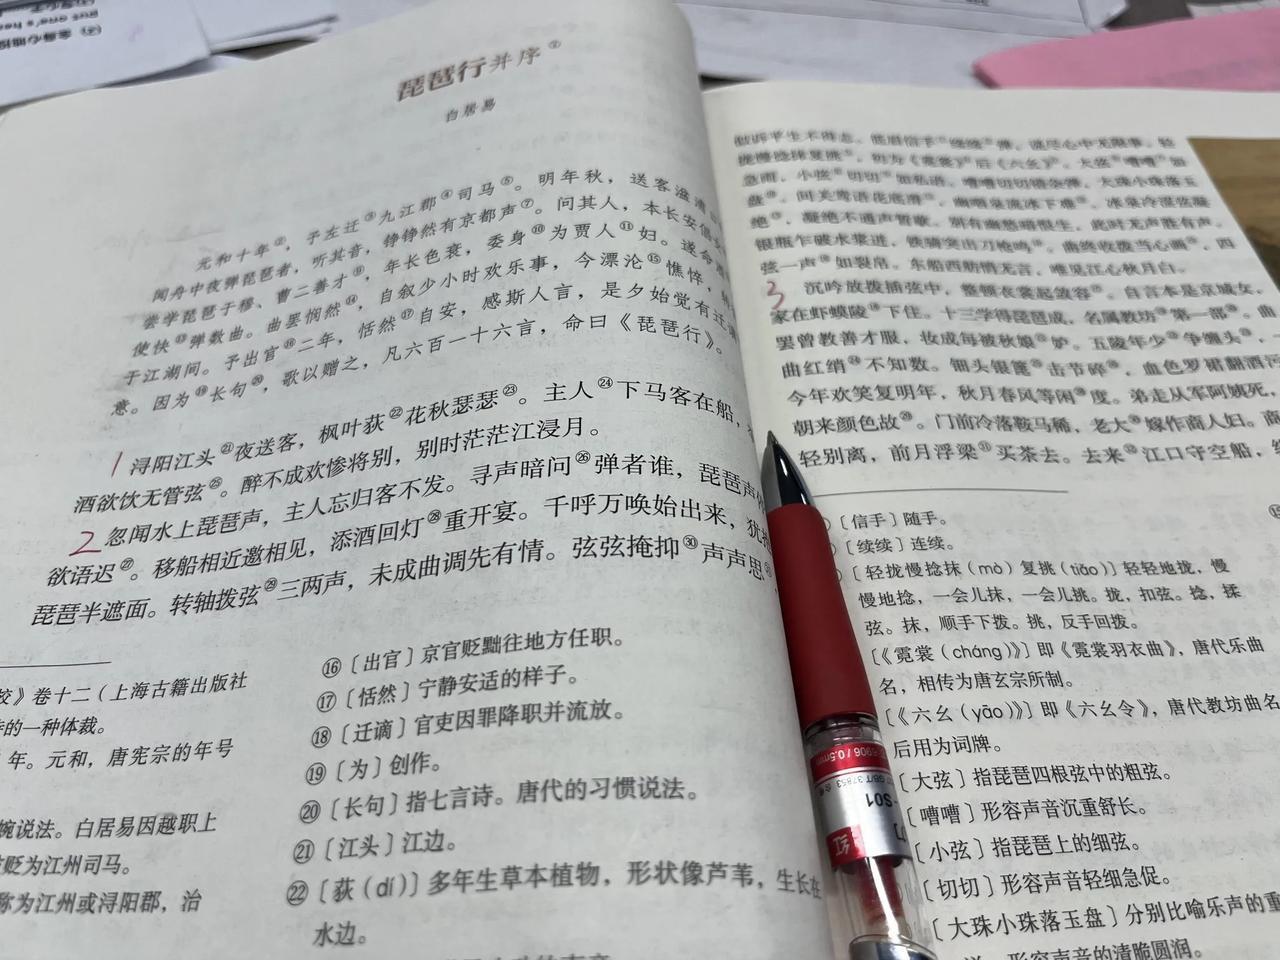 琵琶行并序①
白居易
元和十年②，予左迁③九江郡④司马⑤。明年秋，送客湓浦
闻舟中夜弹琵琶者，听其音，铮铮然有京都声⑦。问其人，本长安倡女
尝学琵琶于穆、曹二善才⑧，年长色衰，委身⑩为贾人⑪妇。遂命酒
使快⑬弹数曲。曲罢悯然⑭，自叙少小时欢乐事，今漂沦⑮憔悴，转
于江湖间。予出官⑯二年，恬然⑰自安，感斯人言，是夕始觉有迁谪
意。因为⑲长句⑳，歌以赠之，凡六百一十六言，命曰《琵琶行》。
1 浔阳江头㉑夜送客，枫叶荻㉒花秋瑟瑟㉓。主人㉔下马客在船，
酒欲饮无管弦㉕。醉不成欢惨将别，别时茫茫江浸月。
2 忽闻水上琵琶声，主人忘归客不发。寻声暗问㉖弹者谁，琵琶声停
欲语迟㉗。移船相近邀相见，添酒回灯㉘重开宴。千呼万唤始出来，犹抱
琵琶半遮面。转轴拨弦㉙三两声，未成曲调先有情。弦弦掩抑㉚声声思
校》卷十二（上海古籍出版社
的一种体裁。
年。元和，唐宪宗的年号
婉说法。白居易因越职上
贬为江州司马。
称为江州或浔阳郡，治
⑯〔出官〕京官贬黜往地方任职。
⑰〔恬然〕宁静安适的样子。
⑱〔迁谪〕官吏因罪降职并流放。
⑲〔为〕创作。
⑳〔长句〕指七言诗。唐代的习惯说法。
㉑〔江头〕江边。
㉒〔荻（dí）〕多年生草本植物，形状像芦苇，生长在
水边。
似诉平生不得志。低眉信手①续续②弹，说尽心中无限事。轻
拢慢捻抹复挑③，初为《霓裳》④后《六幺》⑤。大弦⑥嘈嘈⑦如
急雨，小弦⑧切切⑨如私语。嘈嘈切切错杂弹，大珠小珠落玉
盘⑩。间关莺语花底滑⑪，幽咽泉流冰下难⑫。冰泉冷涩弦凝
绝⑬，凝绝不通声暂歇。别有幽愁暗恨生，此时无声胜有声。
银瓶乍破水浆迸，铁骑突出刀枪鸣⑭。曲终收拨当心画⑮，四
弦一声⑯如裂帛。东船西舫悄无言，唯见江心秋月白。
3 沉吟放拨插弦中，整顿衣裳起敛容⑰。自言本是京城女，
家在虾蟆陵⑱下住。十三学得琵琶成，名属教坊⑲第一部⑳。曲
罢曾教善才服，妆成每被秋娘㉑妒。五陵年少㉒争缠头㉓，
曲红绡㉔不知数。钿头银篦㉕击节碎㉖，血色罗裙翻酒污
今年欢笑复明年，秋月春风等闲㉘度。弟走从军阿姨死，
朝来颜色故㉙。门前冷落鞍马稀，老大㉚嫁作商人妇。商
轻别离，前月浮梁㉛买茶去。去来㉜江口守空船，绕
〔信手〕随手。
〔续续〕连续。
〔轻拢慢捻抹（mò）复挑（tiǎo）〕轻轻地拢，慢
慢地捻，一会儿抹，一会儿挑。拢，扣弦。捻，揉
弦。抹，顺手下拨。挑，反手回拨。
〔《霓裳（cháng）》〕即《霓裳羽衣曲》，唐代乐曲
名，相传为唐玄宗所制。
〔《六幺（yāo）》〕即《六幺令》，唐代教坊曲名
后用为词牌。
〔大弦〕指琵琶四根弦中的粗弦。
〔嘈嘈〕形容声音沉重舒长。
〔小弦〕指琵琶上的细弦。
〔切切〕形容声音轻细急促。
〔大珠小珠落玉盘〕分别比喻乐声的重
形容声音的清脆圆润。
6906 / 0.5mm
GB/T 37853
S01
红